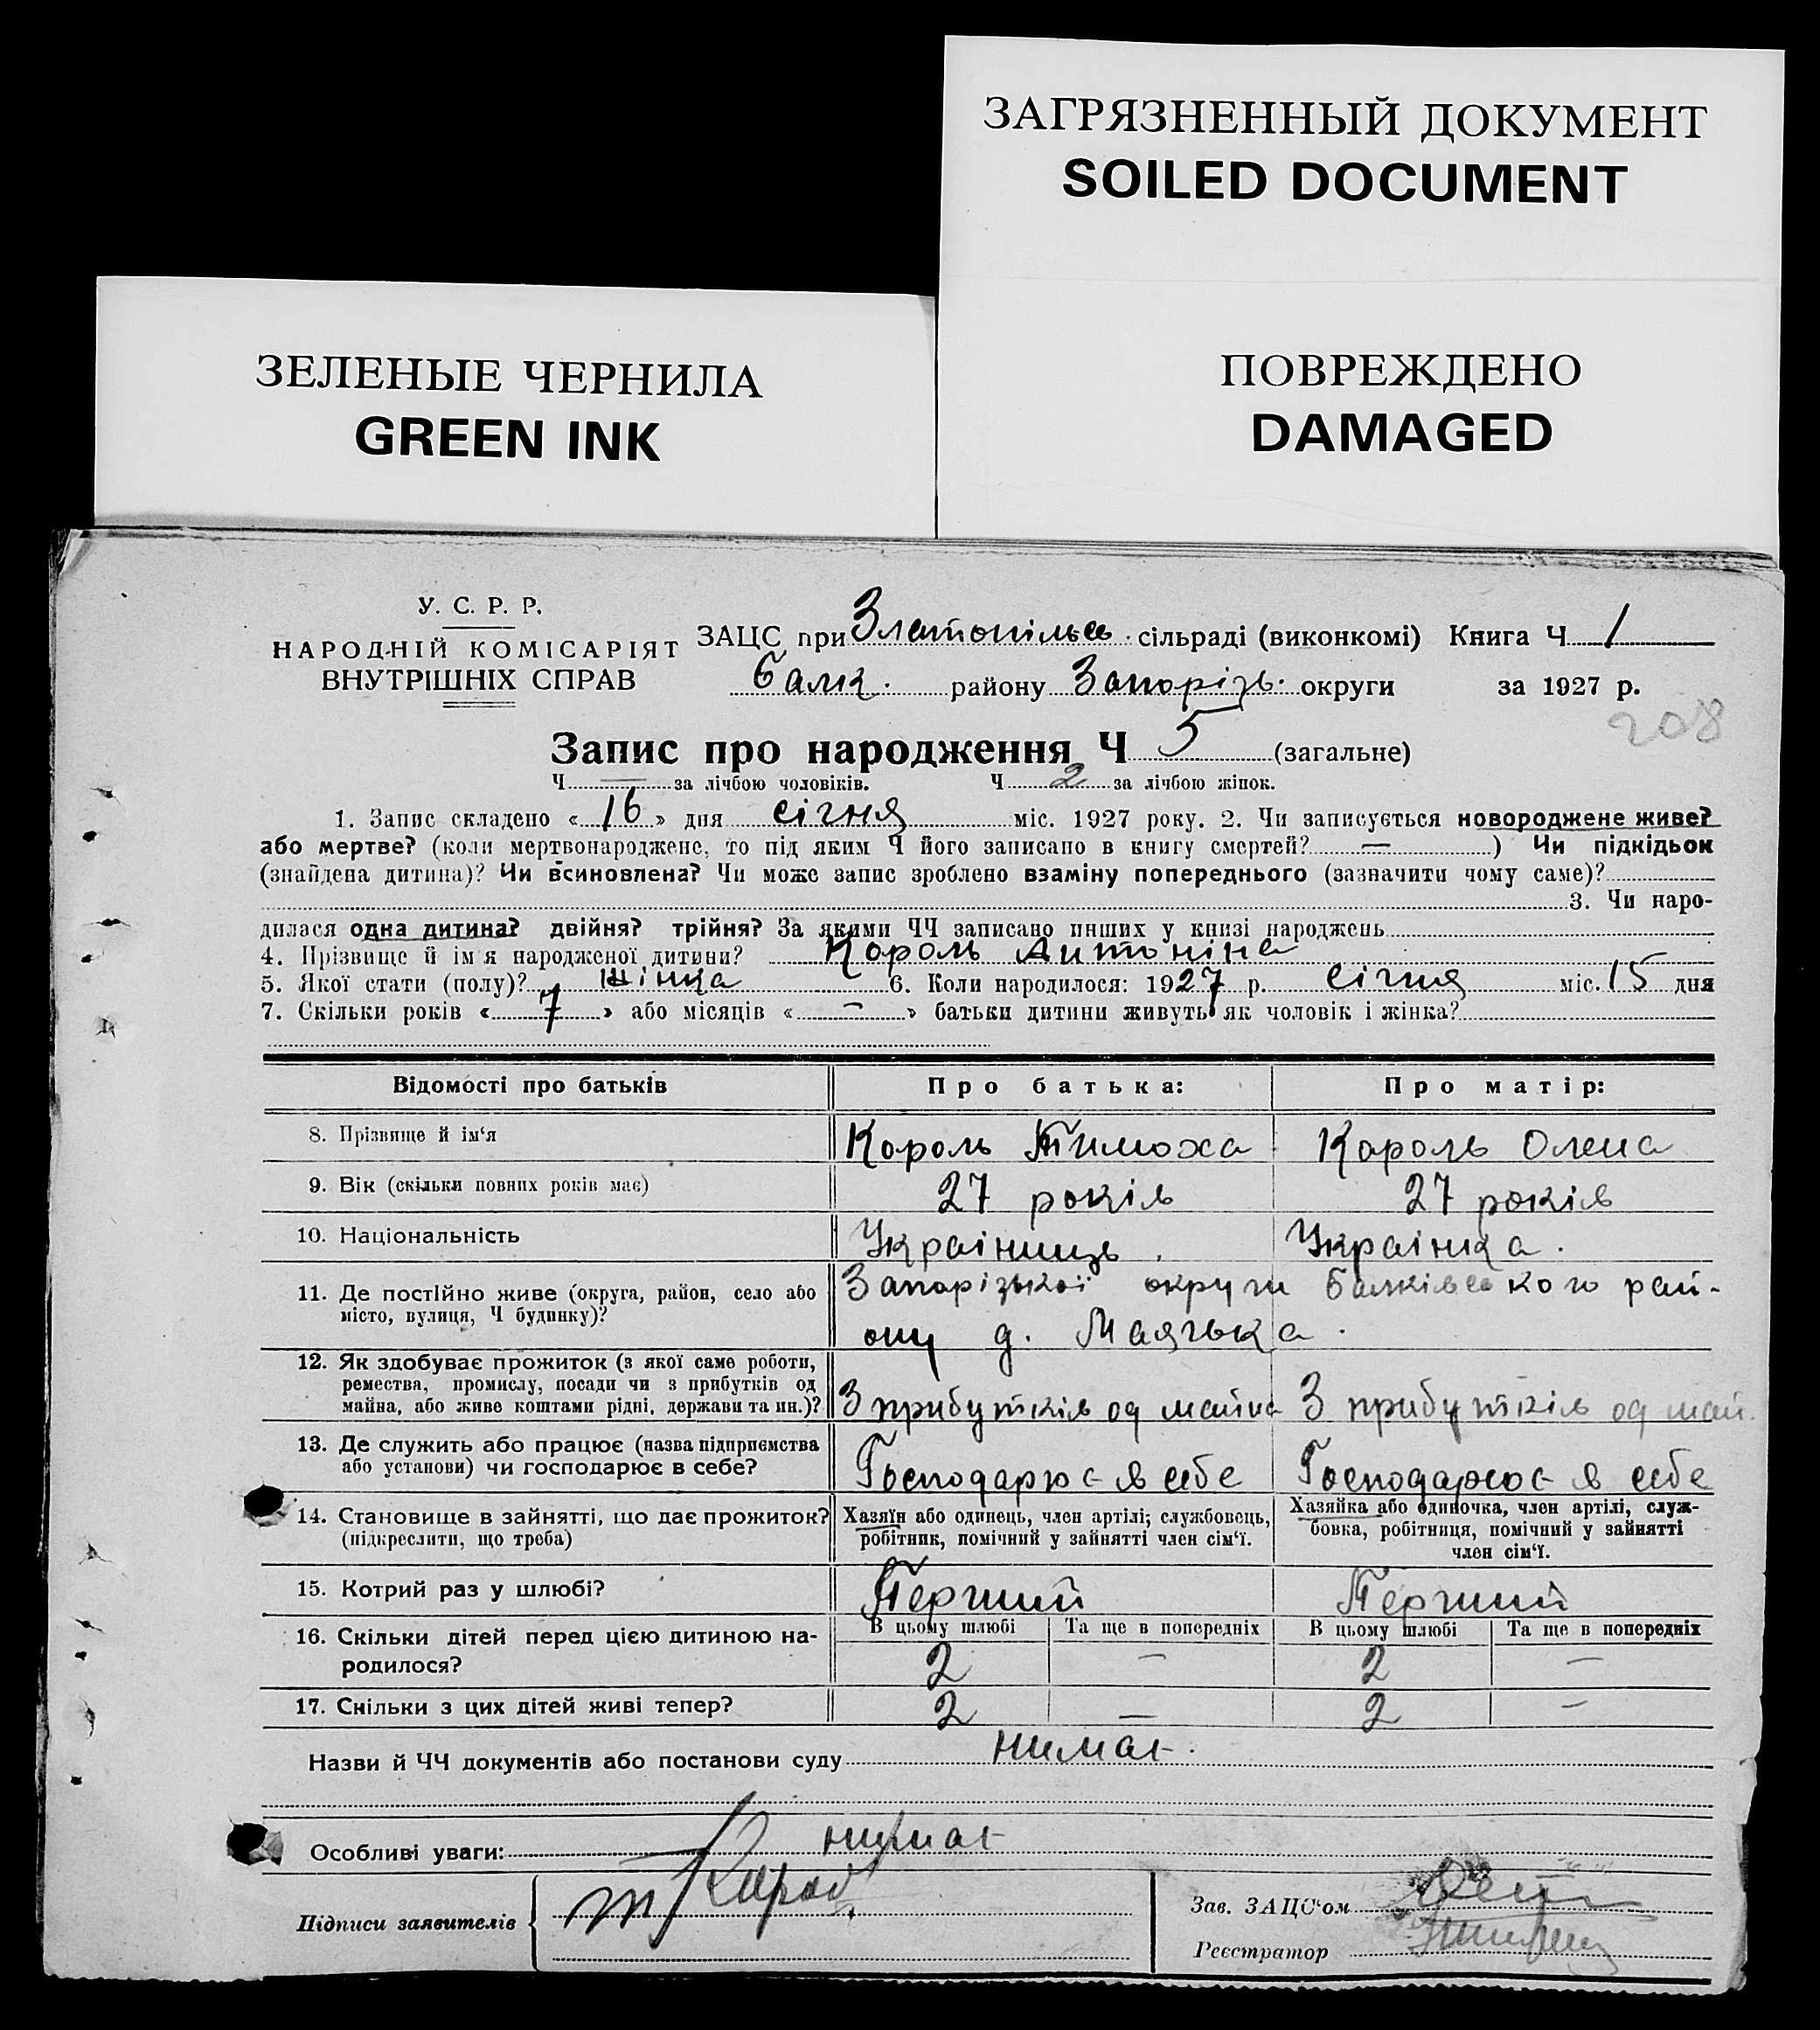 ЗАГРЯЗНЕННЫЙ ДОКУМЕНТ
SOILED DOCUMENT
ЗЕЛЕНЫЕ ЧЕРНИЛА
GREEN INK
ПОВРЕЖДЕНО
DAMAGED
У. С. Р. Р.
НАРОДНІЙ КОМІСАРІЯТ
ВНУТРІШНІХ СПРАВ
ЗАЦС при Златопільсв. сільраді (виконкомі) Книга Ч 1
Балк. району Запорізь. округи за 1927 р.
208
Запис про народження Ч 5 (загальне)
Ч — за лічбою чоловіків. Ч 2 за лічбою жінок.
1. Запис складено « 16 » дня січня міс. 1927 року. 2. Чи записується новороджене живе?
або мертве? (коли мертвонароджене, то під яким Ч його записано в книгу смертей? — ) Чи підкідьок
(знайдена дитина)? Чи всиновлена? Чи може запис зроблено взаміну попереднього (зазначити чому саме)?
3. Чи наро-
дилася одна дитина? двійня? трійня? За якими ЧЧ записано инших у книзі народжень
4. Прізвище й ім'я народженої дитини? Король Антоніна
5. Якої стати (полу)? жінка 6. Коли народилося: 1927 р. січня міс. 15 дня
7. Скільки років « 7 » або місяців « — » батьки дитини живуть як чоловік і жінка?
Відомості про батьків Про батька: Про матір:
8. Прізвище й ім'я Король Тимоха Король Олена
9. Вік (скільки повних років має) 27 років 27 років
10. Національність Україниць Українка.
11. Де постійно живе (округа, район, село або
місто, вулиця, Ч будинку)?
Запорізької округи Балківського рай-
ону д. Маячька.
12. Як здобуває прожиток (з якої саме роботи,
ремества, промислу, посади чи з прибутків од
майна, або живе коштами рідні, держави та ин.)? З прибутків од майна З прибутків од май.
13. Де служить або працює (назва підприємства
або установи) чи господарює в себе? Господарює в себе Господарює в себе
14. Становище в зайнятті, що дає прожиток?
(підкреслити, що треба)
Хазяїн або одинець, член артілі; службовець,
робітник, помічний у зайнятті член сім'ї.
Хазяйка або одиночка, член артілі, служ-
бовка, робітниця, помічний у зайнятті
член сім'ї.
15. Котрий раз у шлюбі? Перший Перший
В цьому шлюбі Та ще в попередніх В цьому шлюбі Та ще в попередніх
16. Скільки дітей перед цією дитиною на-
родилося? 2 — 2 —
17. Скільки з цих дітей живі тепер? 2 — 2 —
Назви й ЧЧ документів або постанови суду нимає.
Особливі уваги: нимає
Підписи заявителів Т Король
Зав. ЗАЦС'ом
Реєстратор